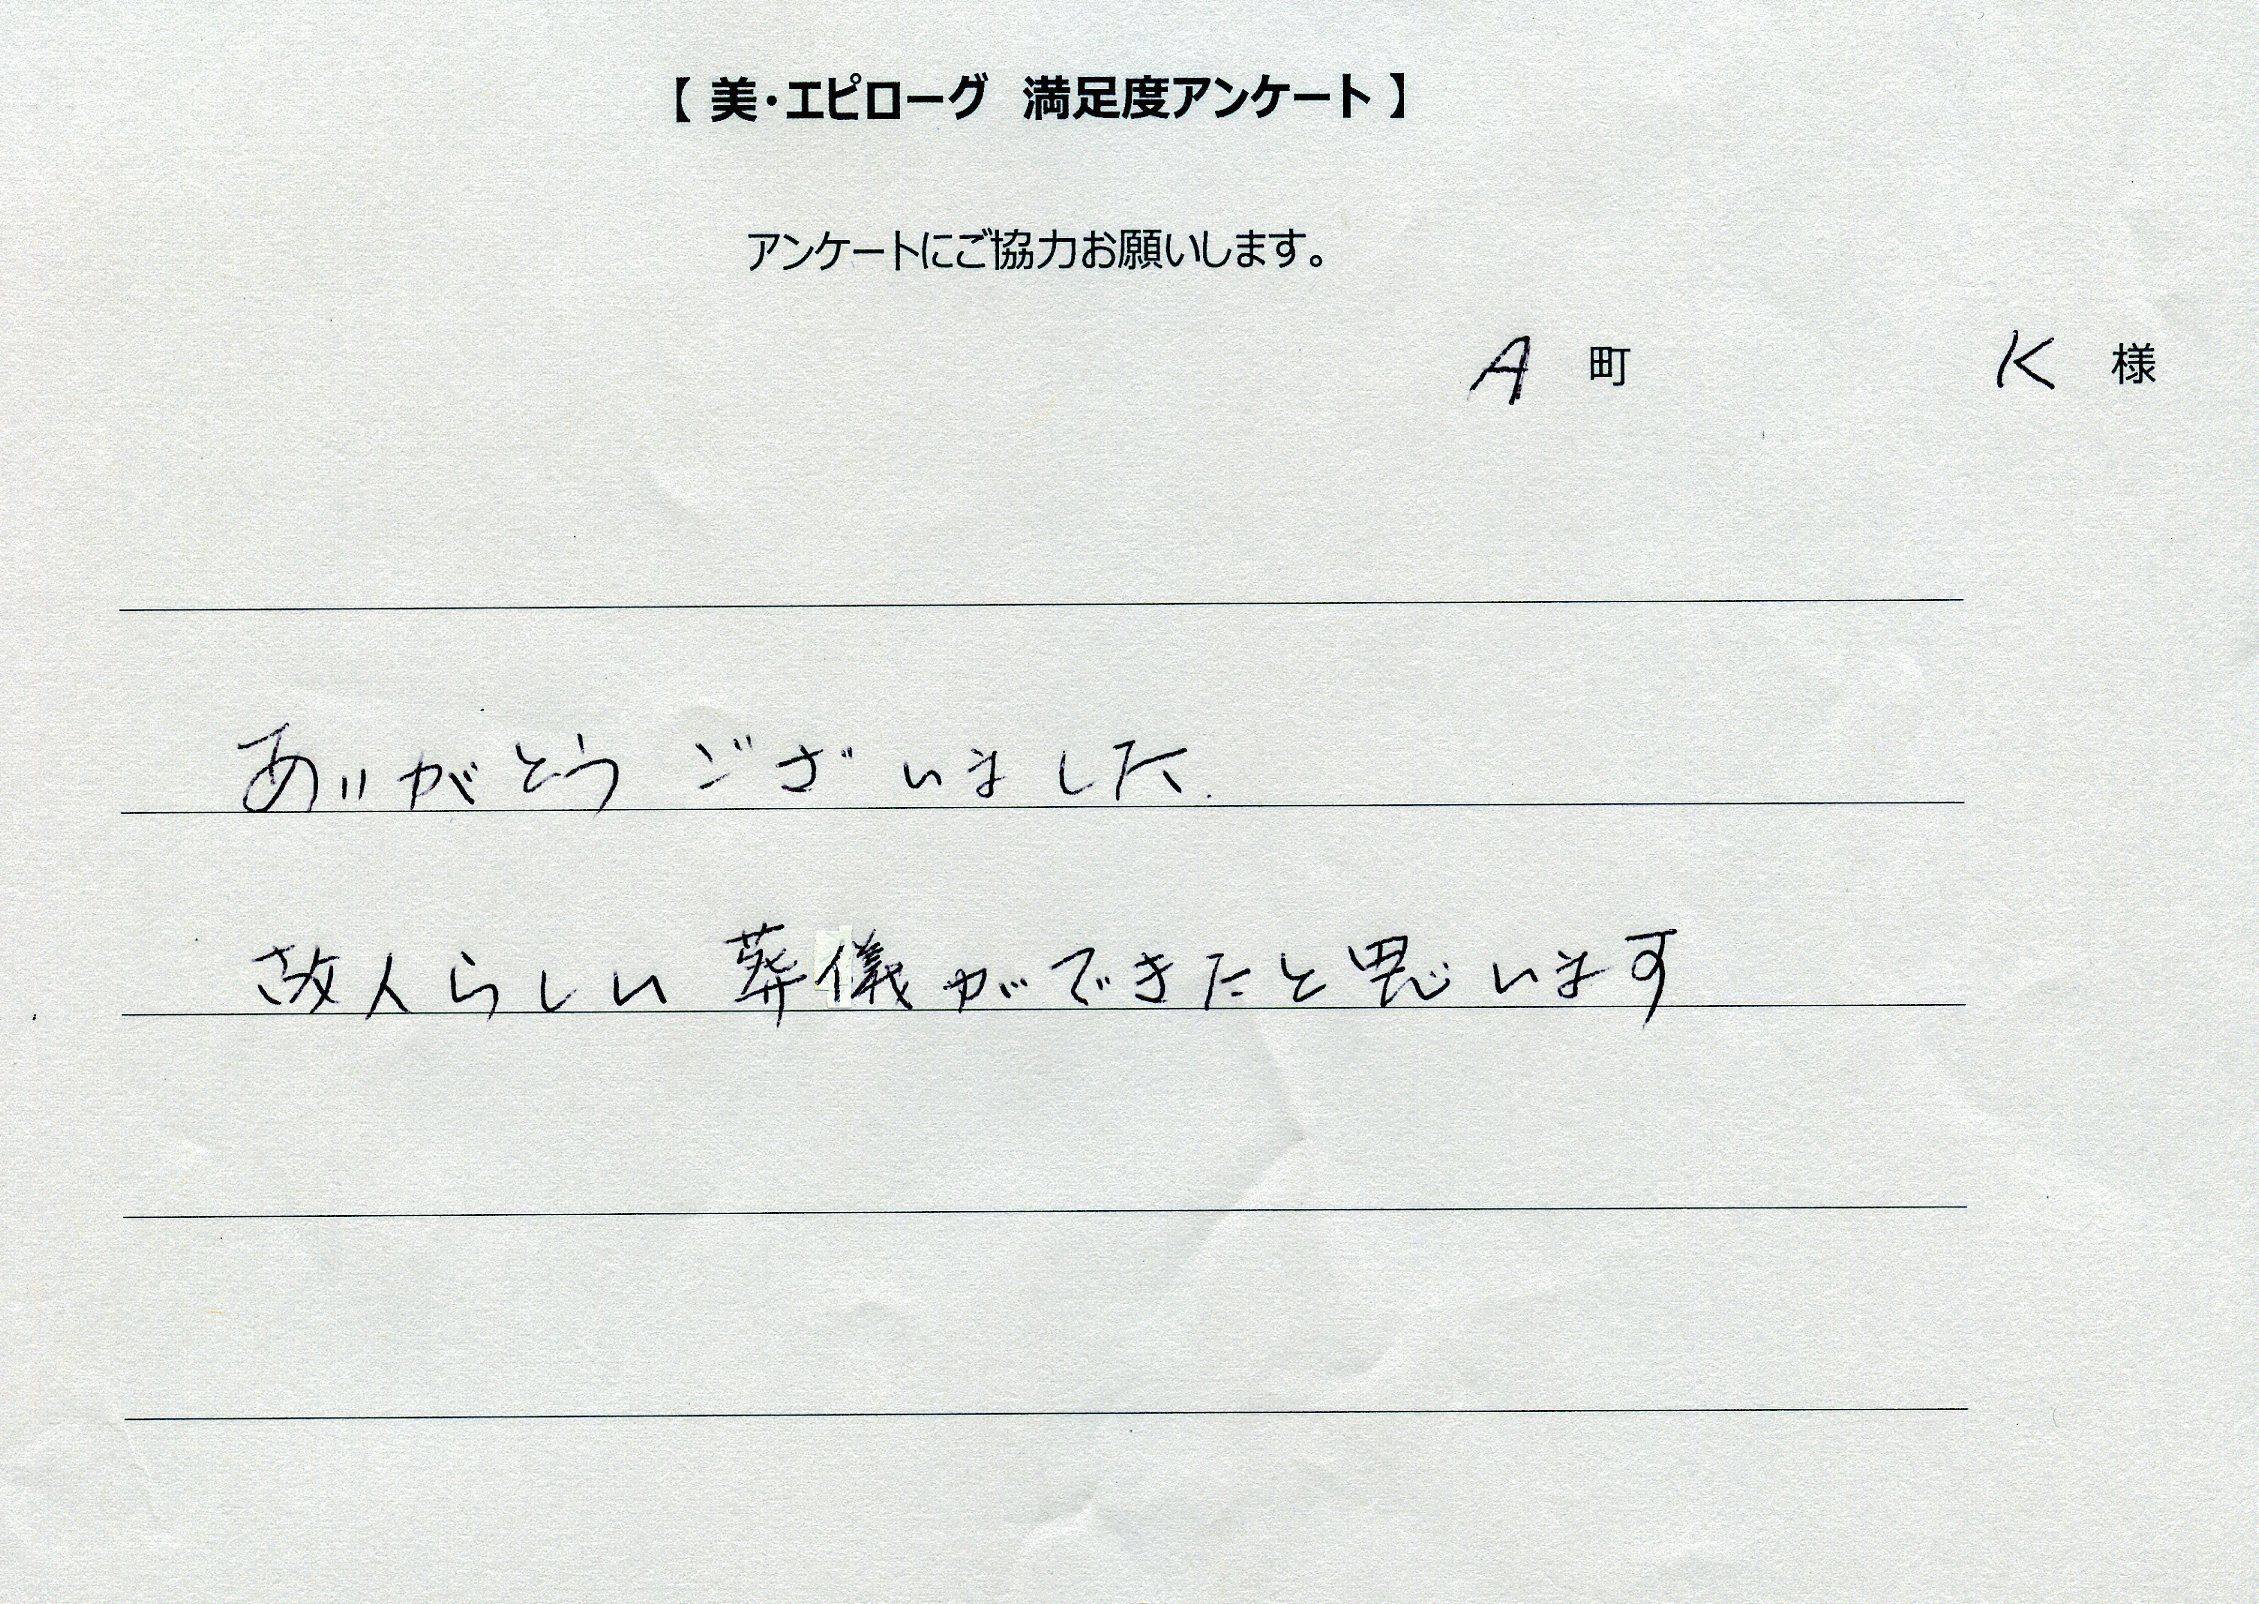 【 美・エピローグ 満足度アンケート 】
アンケートにご協力お願いします。
A 町 K 様
ありがとうございました.
故人らしい葬儀ができたと思います